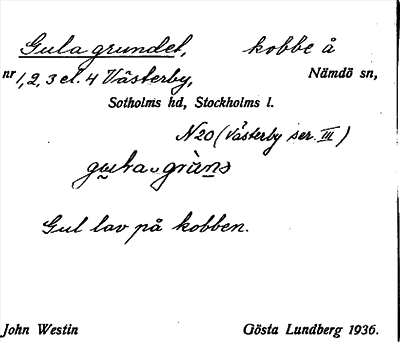 Gula grundet, kobbe å
nr 1, 2, 3 el. 4 Västerby, Nämdö sn,
Sotholms hd, Stockholms l.
N20 (Västerby ser. III)
Gul lav på kobben.
John Westin Gösta Lundberg 1936.